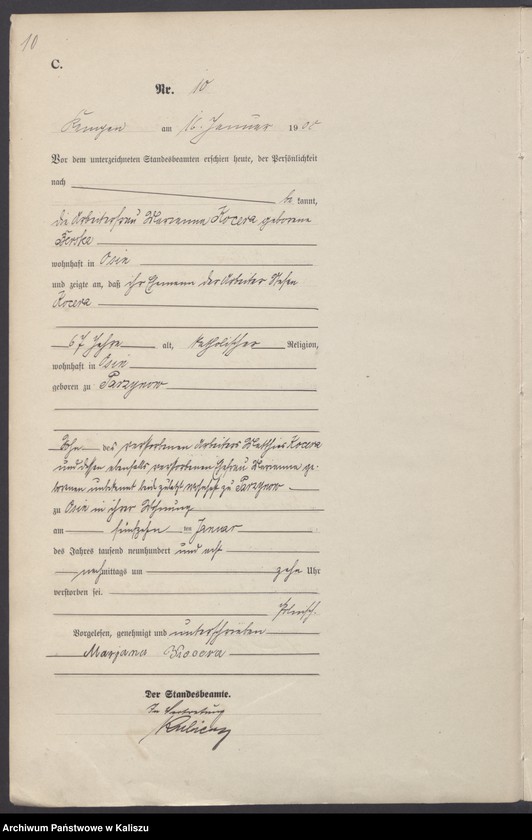 10
C.
Nr. 10
Kempen am 16. Januar 1908
Vor dem unterzeichneten Standesbeamten erschien heute, der Persönlichkeit
nach be kannt,
die Arbeiterfrau Marianna Kocera geborene
wohnhaft in Osin
und zeigte an, daß ihr Ehemann der Arbeiter
Kocera
67 Jahre alt, katholischer Religion,
wohnhaft in Osin
geboren zu Parzynow
Sohn des verstorbenen Arbeiters Matthias Kocera
und dessen ebenfalls verstorbenen Ehefrau Marianna ge-
borenen unbekannt beide zuletzt wohnhaft zu Parzynow
zu Osin in ihrer Wohnung
am fünfzehn ten Januar
des Jahres tausend neunhundert und acht
nachmittags um zehn Uhr
verstorben sei.
Vorgelesen, genehmigt und unterschrieben
Marjana Kocera
Der Standesbeamte.
In Vertretung
Archiwum Państwowe w Kaliszu